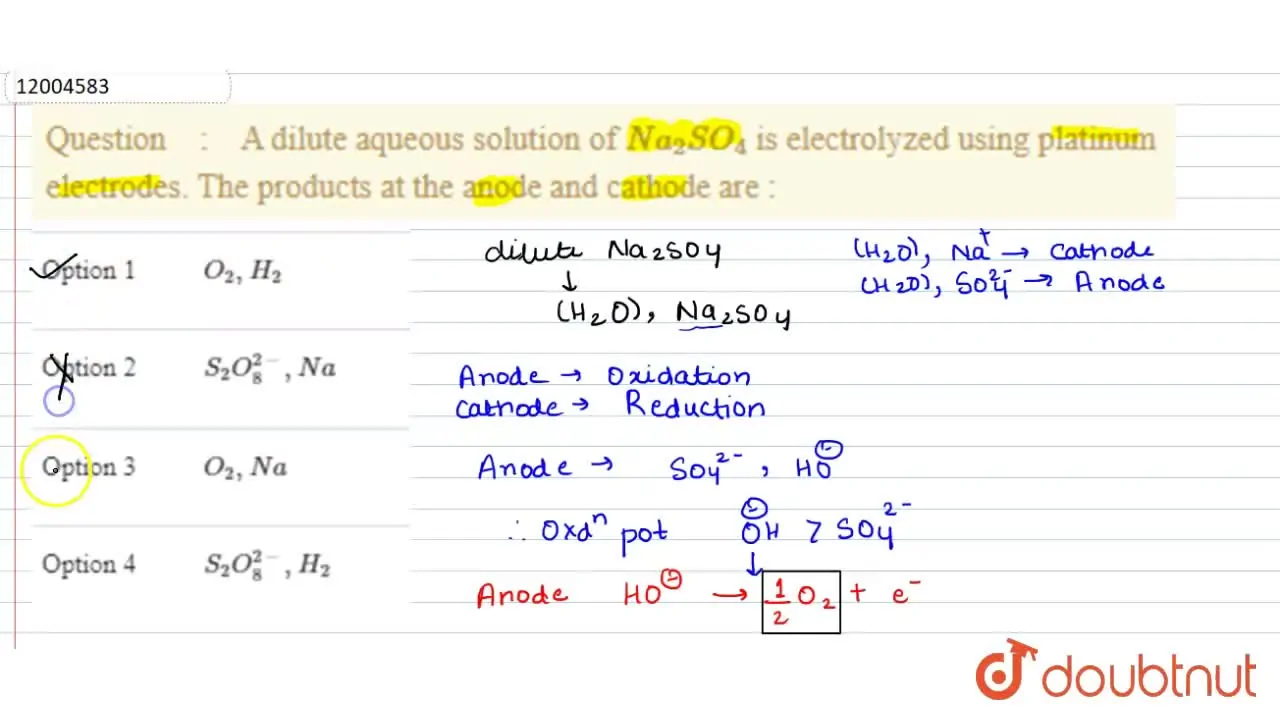 12004583
Question : A dilute aqueous solution of Na₂SO₄ is electrolyzed using platinum
electrodes. The products at the anode and cathode are :
Option 1 O₂, H₂
Option 2 S₂O₈²⁻, Na
Option 3 O₂, Na
Option 4 S₂O₈²⁻, H₂
dilute Na₂SO₄
↓
(H₂O), Na₂SO₄
(H₂O), Na⁺ → Cathode
(H₂O), SO₄²⁻ → Anode
Anode → Oxidation
Cathode → Reduction
Anode → SO₄²⁻, HO⊖
∴ Oxdⁿ pot ⊖OH > SO₄²⁻
↓
Anode HO⊖ → 1/2 O₂ + e⁻
doubtnut